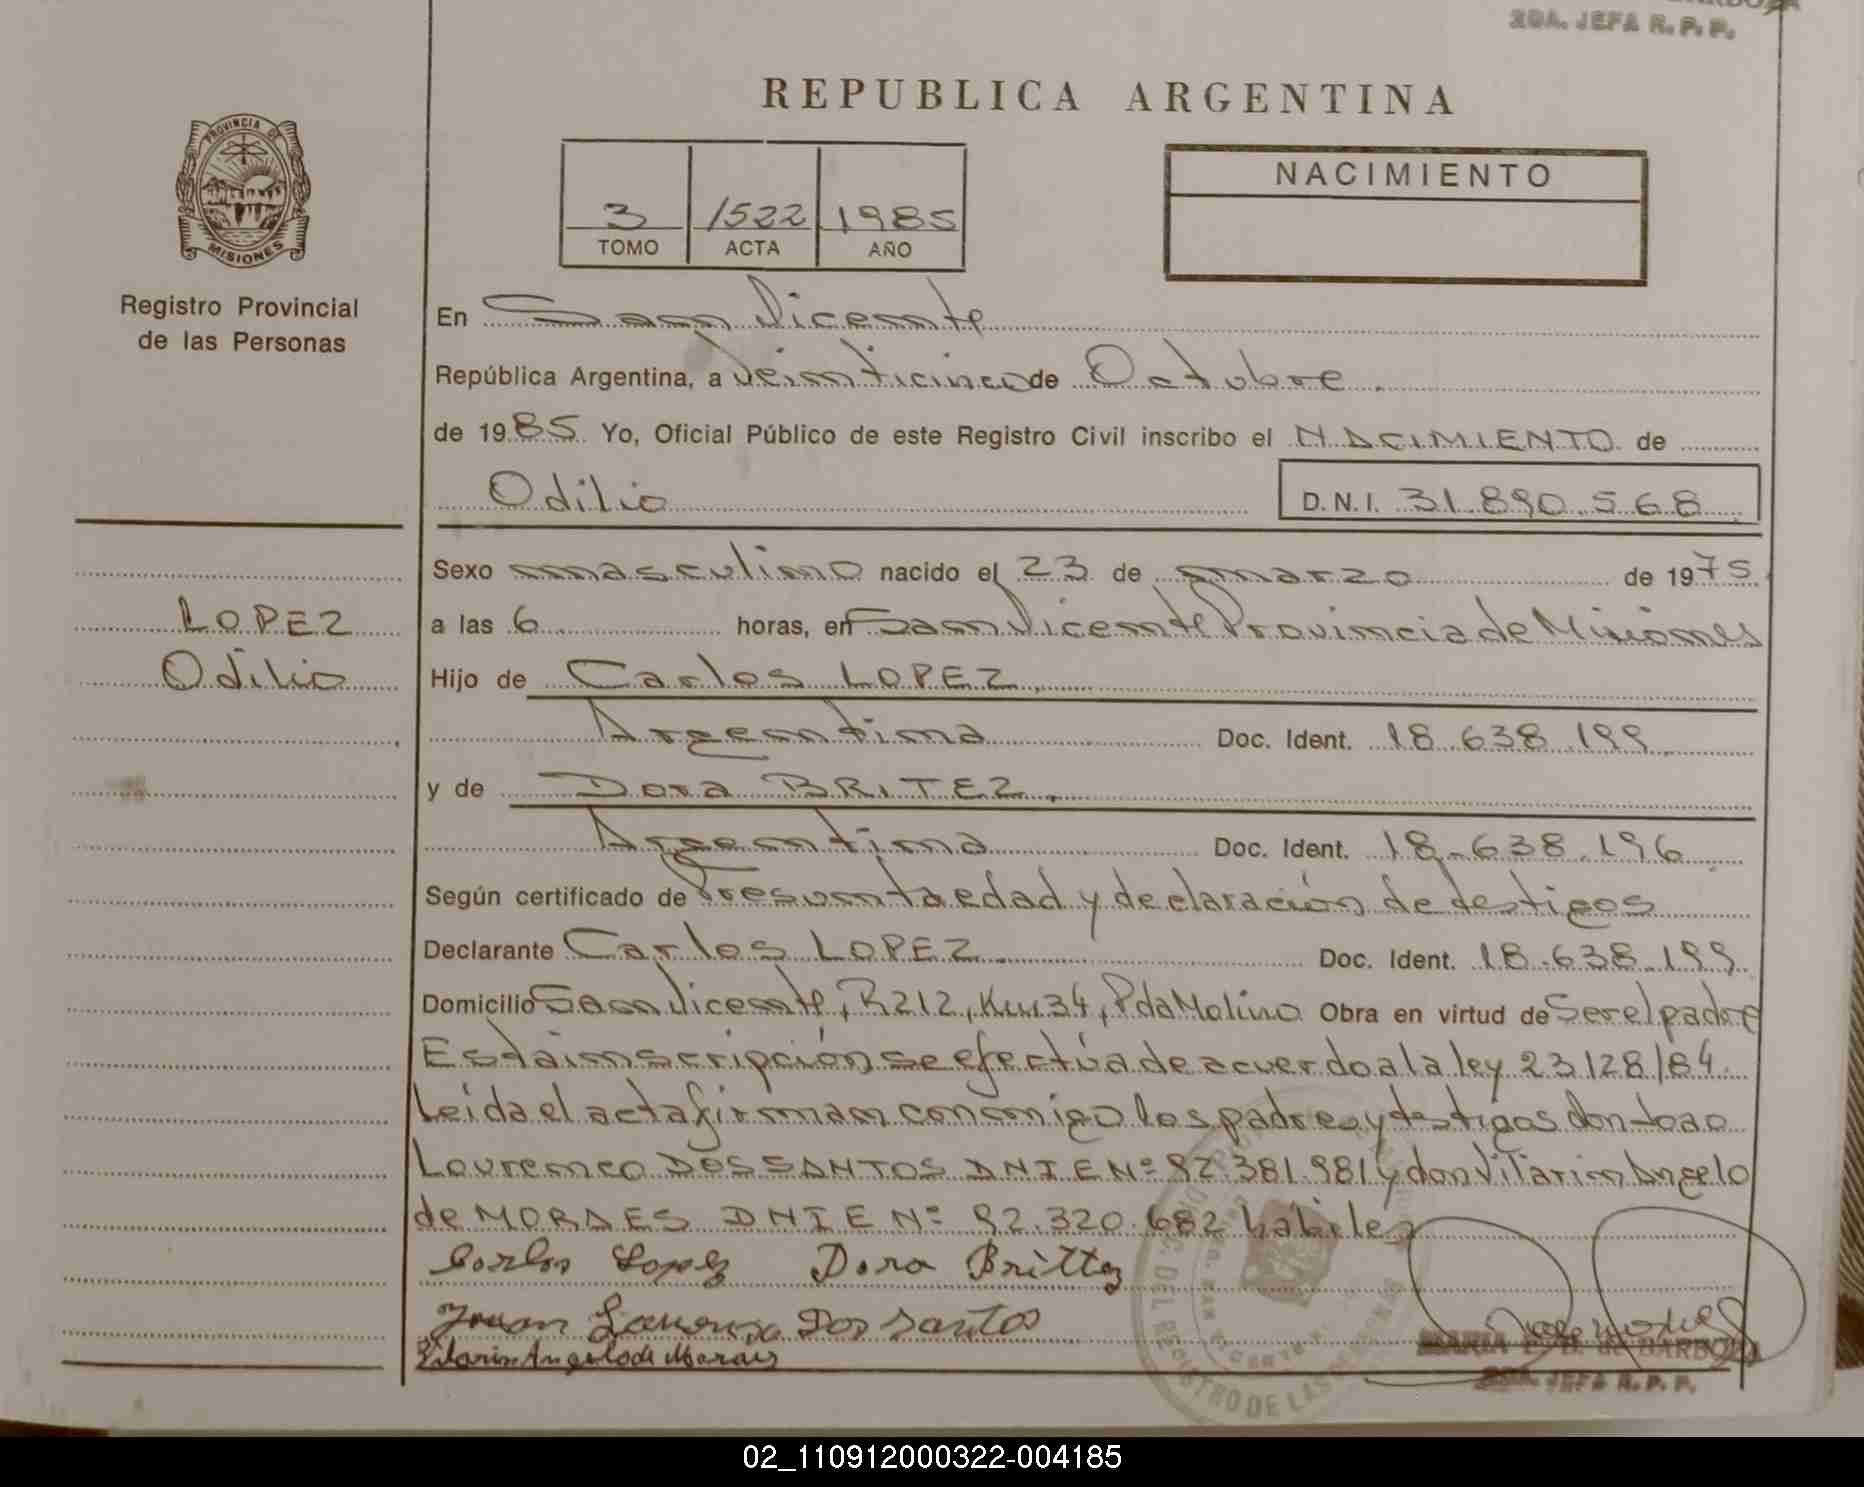 2DA. JEFA R. P. P.
REPUBLICA ARGENTINA
PROVINCIA DE
MISIONES
Registro Provincial
de las Personas
3 1522 1985
TOMO ACTA AÑO
NACIMIENTO
En San Vicente
República Argentina, a veinticinco de Octubre
de 1985 Yo, Oficial Público de este Registro Civil inscribo el NACIMIENTO de
Odilio
D.N.I. 31.890.568
LOPEZ
Odilio
Sexo masculino nacido el 23 de marzo de 1975
a las 6 horas, en San Vicente Provincia de Misiones
Hijo de Carlos LOPEZ
Argentina Doc. Ident. 18.638.199
y de Dora BRITEZ
Argentina Doc. Ident. 18.638.196
Según certificado de Presunta edad y declaración de testigos
Declarante Carlos LOPEZ Doc. Ident. 18.638.199
Domicilio San Vicente, R212, Km 34, Pda Molino Obra en virtud de Ser el padre
Esta inscripción se efectúa de acuerdo a la ley 23128/84.
Leída el acta firman conmigo los padres y testigos don Joao
Lourenco DOS SANTOS DNIE Nº 92.381.981 y don Vitarin Angelo
de MORAES DNIE Nº 92.320.682 habiles
Carlos Lopez Dora Brittez
Juan Lourenso Dos santos
Vitarin Angelo de Moraes
MARIA E. D. de BARBOZA
2DA. JEFA R. P. P.
02_110912000322-004185